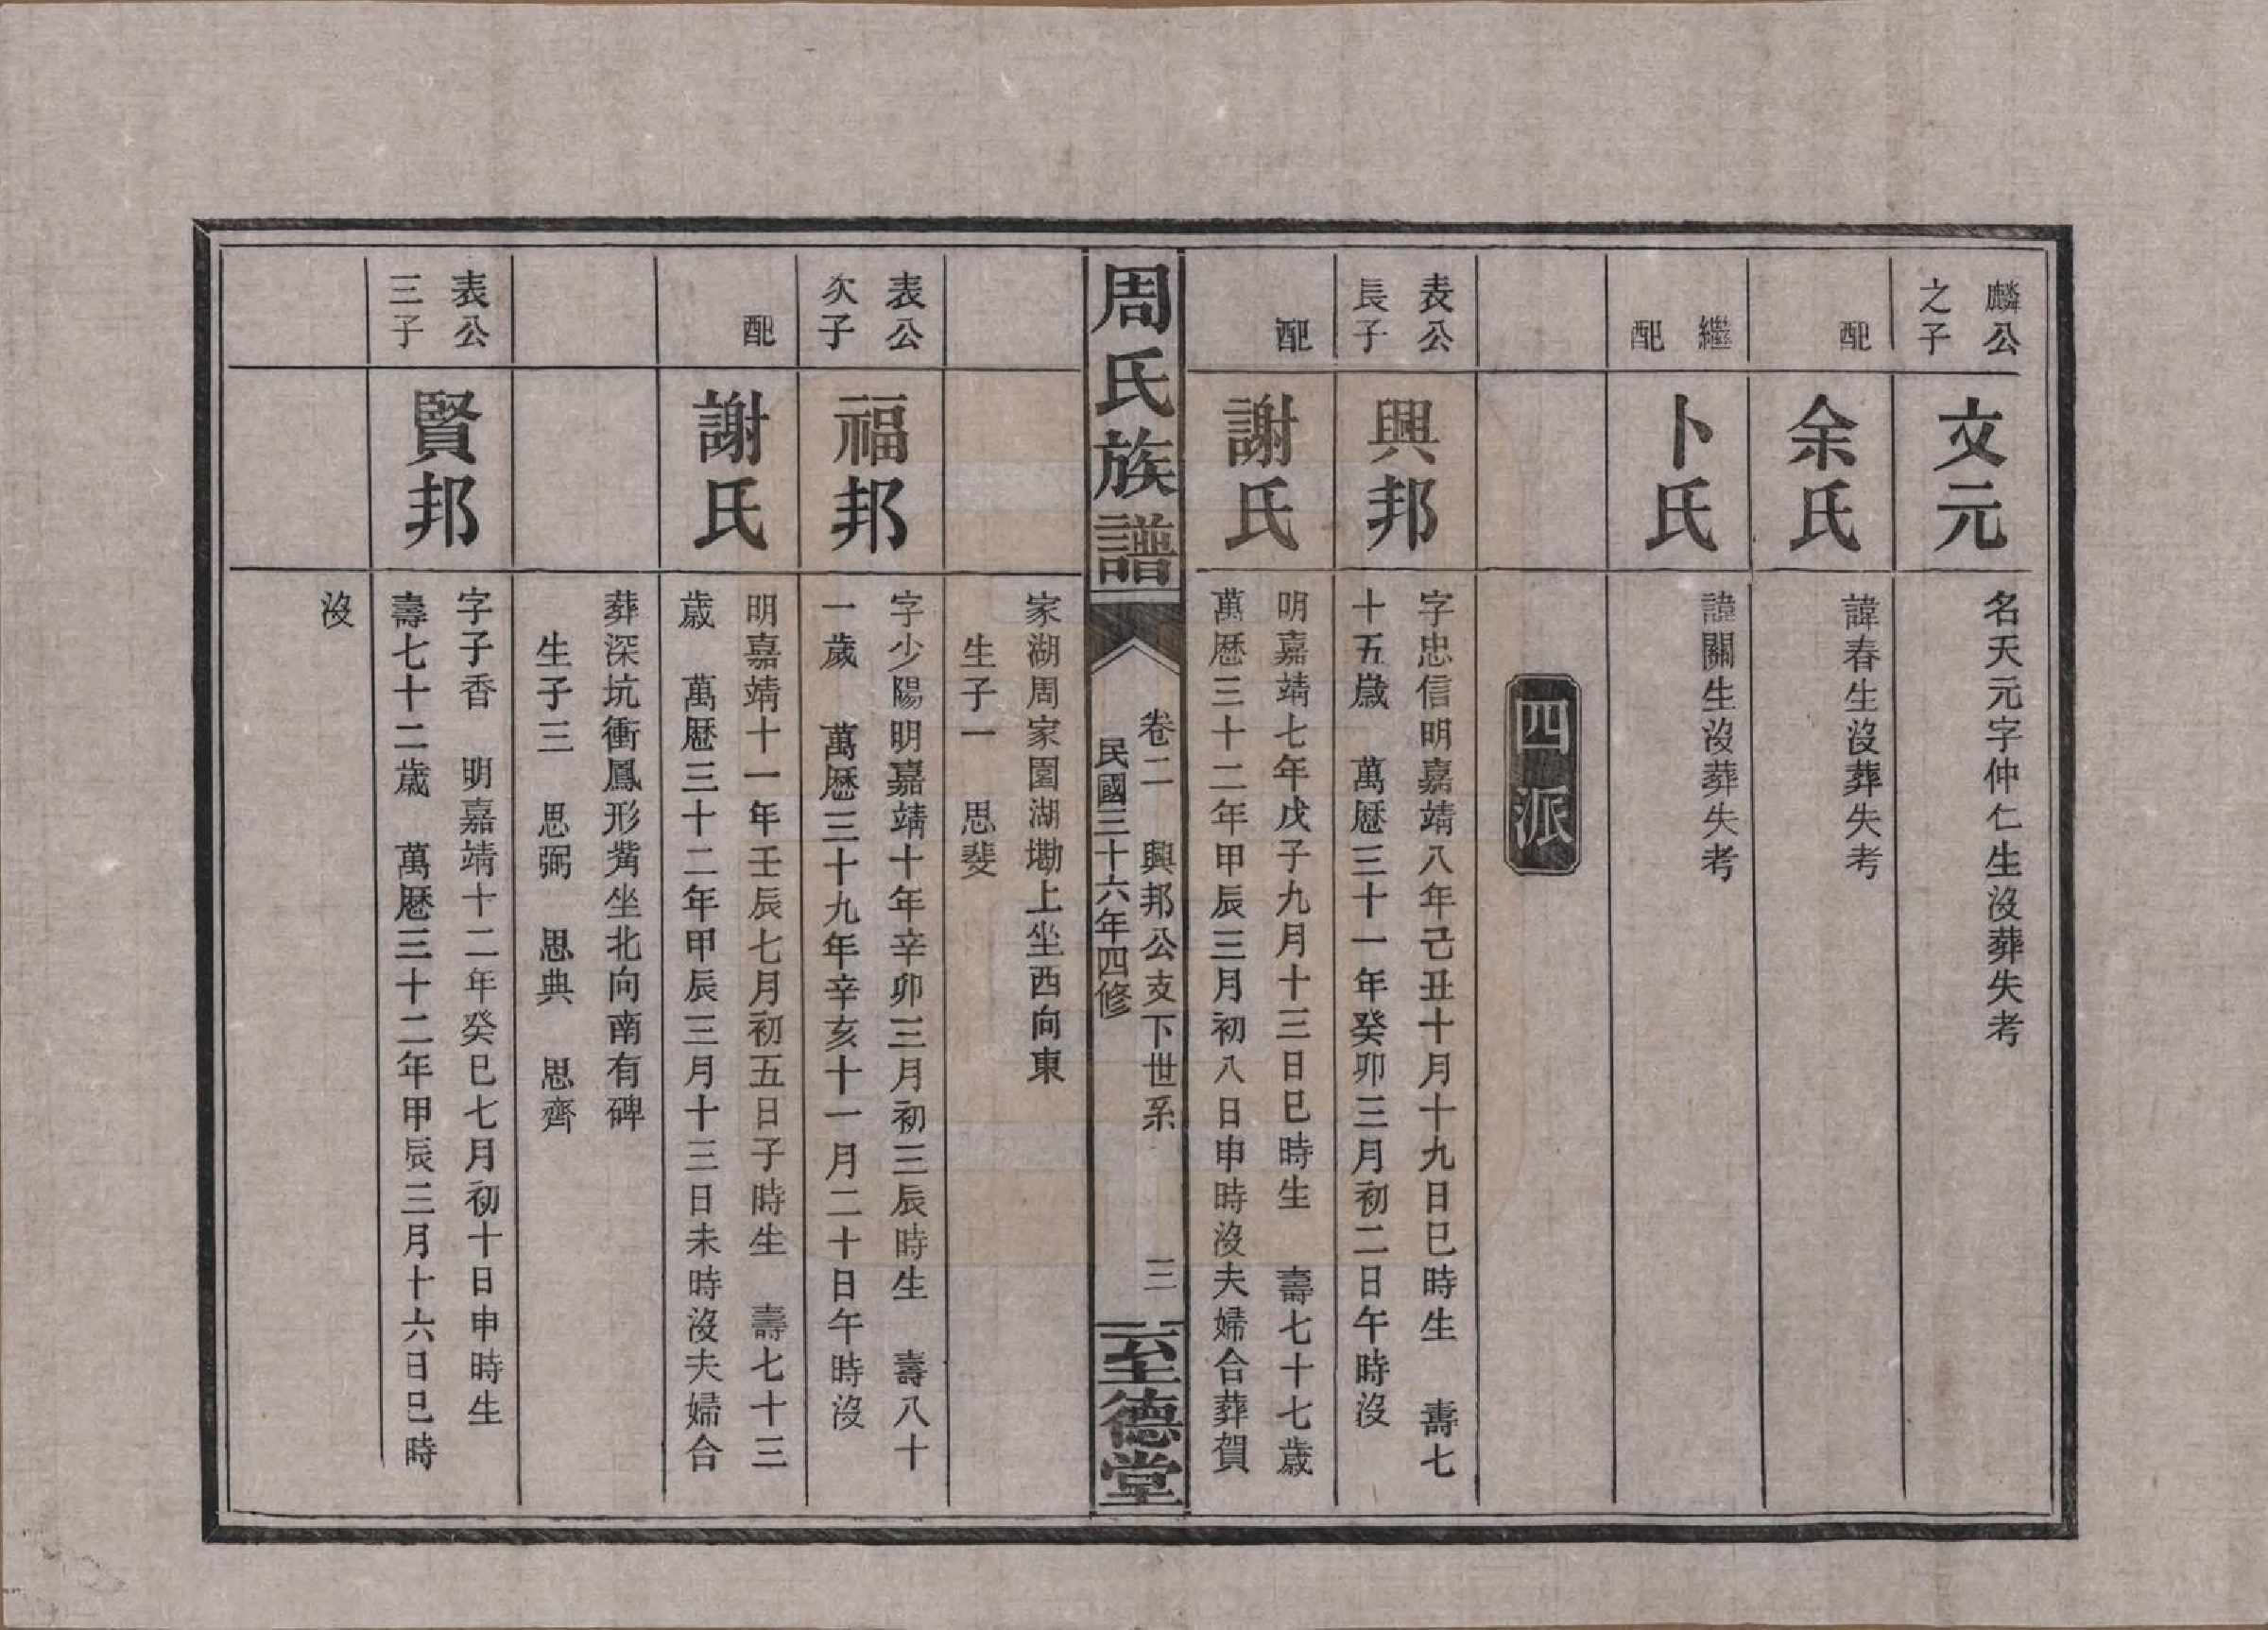 麟公
之子
文元
名天元字仲仁生沒葬失考
配
余氏
諱春生沒葬失考
繼
配
卜氏
諱關生沒葬失考
四派
表公
長子
興邦
字忠信明嘉靖八年己丑十月十九日巳時生　壽七
十五歲　萬歷三十一年癸卯三月初二日午時沒
配
謝氏
明嘉靖七年戊子九月十三日巳時生　壽七十七歲
萬歷三十二年甲辰三月初八日申時沒夫婦合葬賀
周氏族譜
卷二　興邦公支下世系　三
民國三十六年四修
至德堂
家湖周家園湖墈上坐西向東
生子一　思斐
表公
次子
福邦
字少陽明嘉靖十年辛卯三月初三辰時生　壽八十
一歲　萬歷三十九年辛亥十一月二十日午時沒
配
謝氏
明嘉靖十一年壬辰七月初五日子時生　壽七十三
歲　萬歷三十二年甲辰三月十三日未時沒夫婦合
葬深坑衝鳳形嘴坐北向南有碑
生子三　思弼　思典　思齊
表公
三子
賢邦
字子香　明嘉靖十二年癸巳七月初十日申時生
壽七十二歲　萬歷三十二年甲辰三月十六日巳時
沒